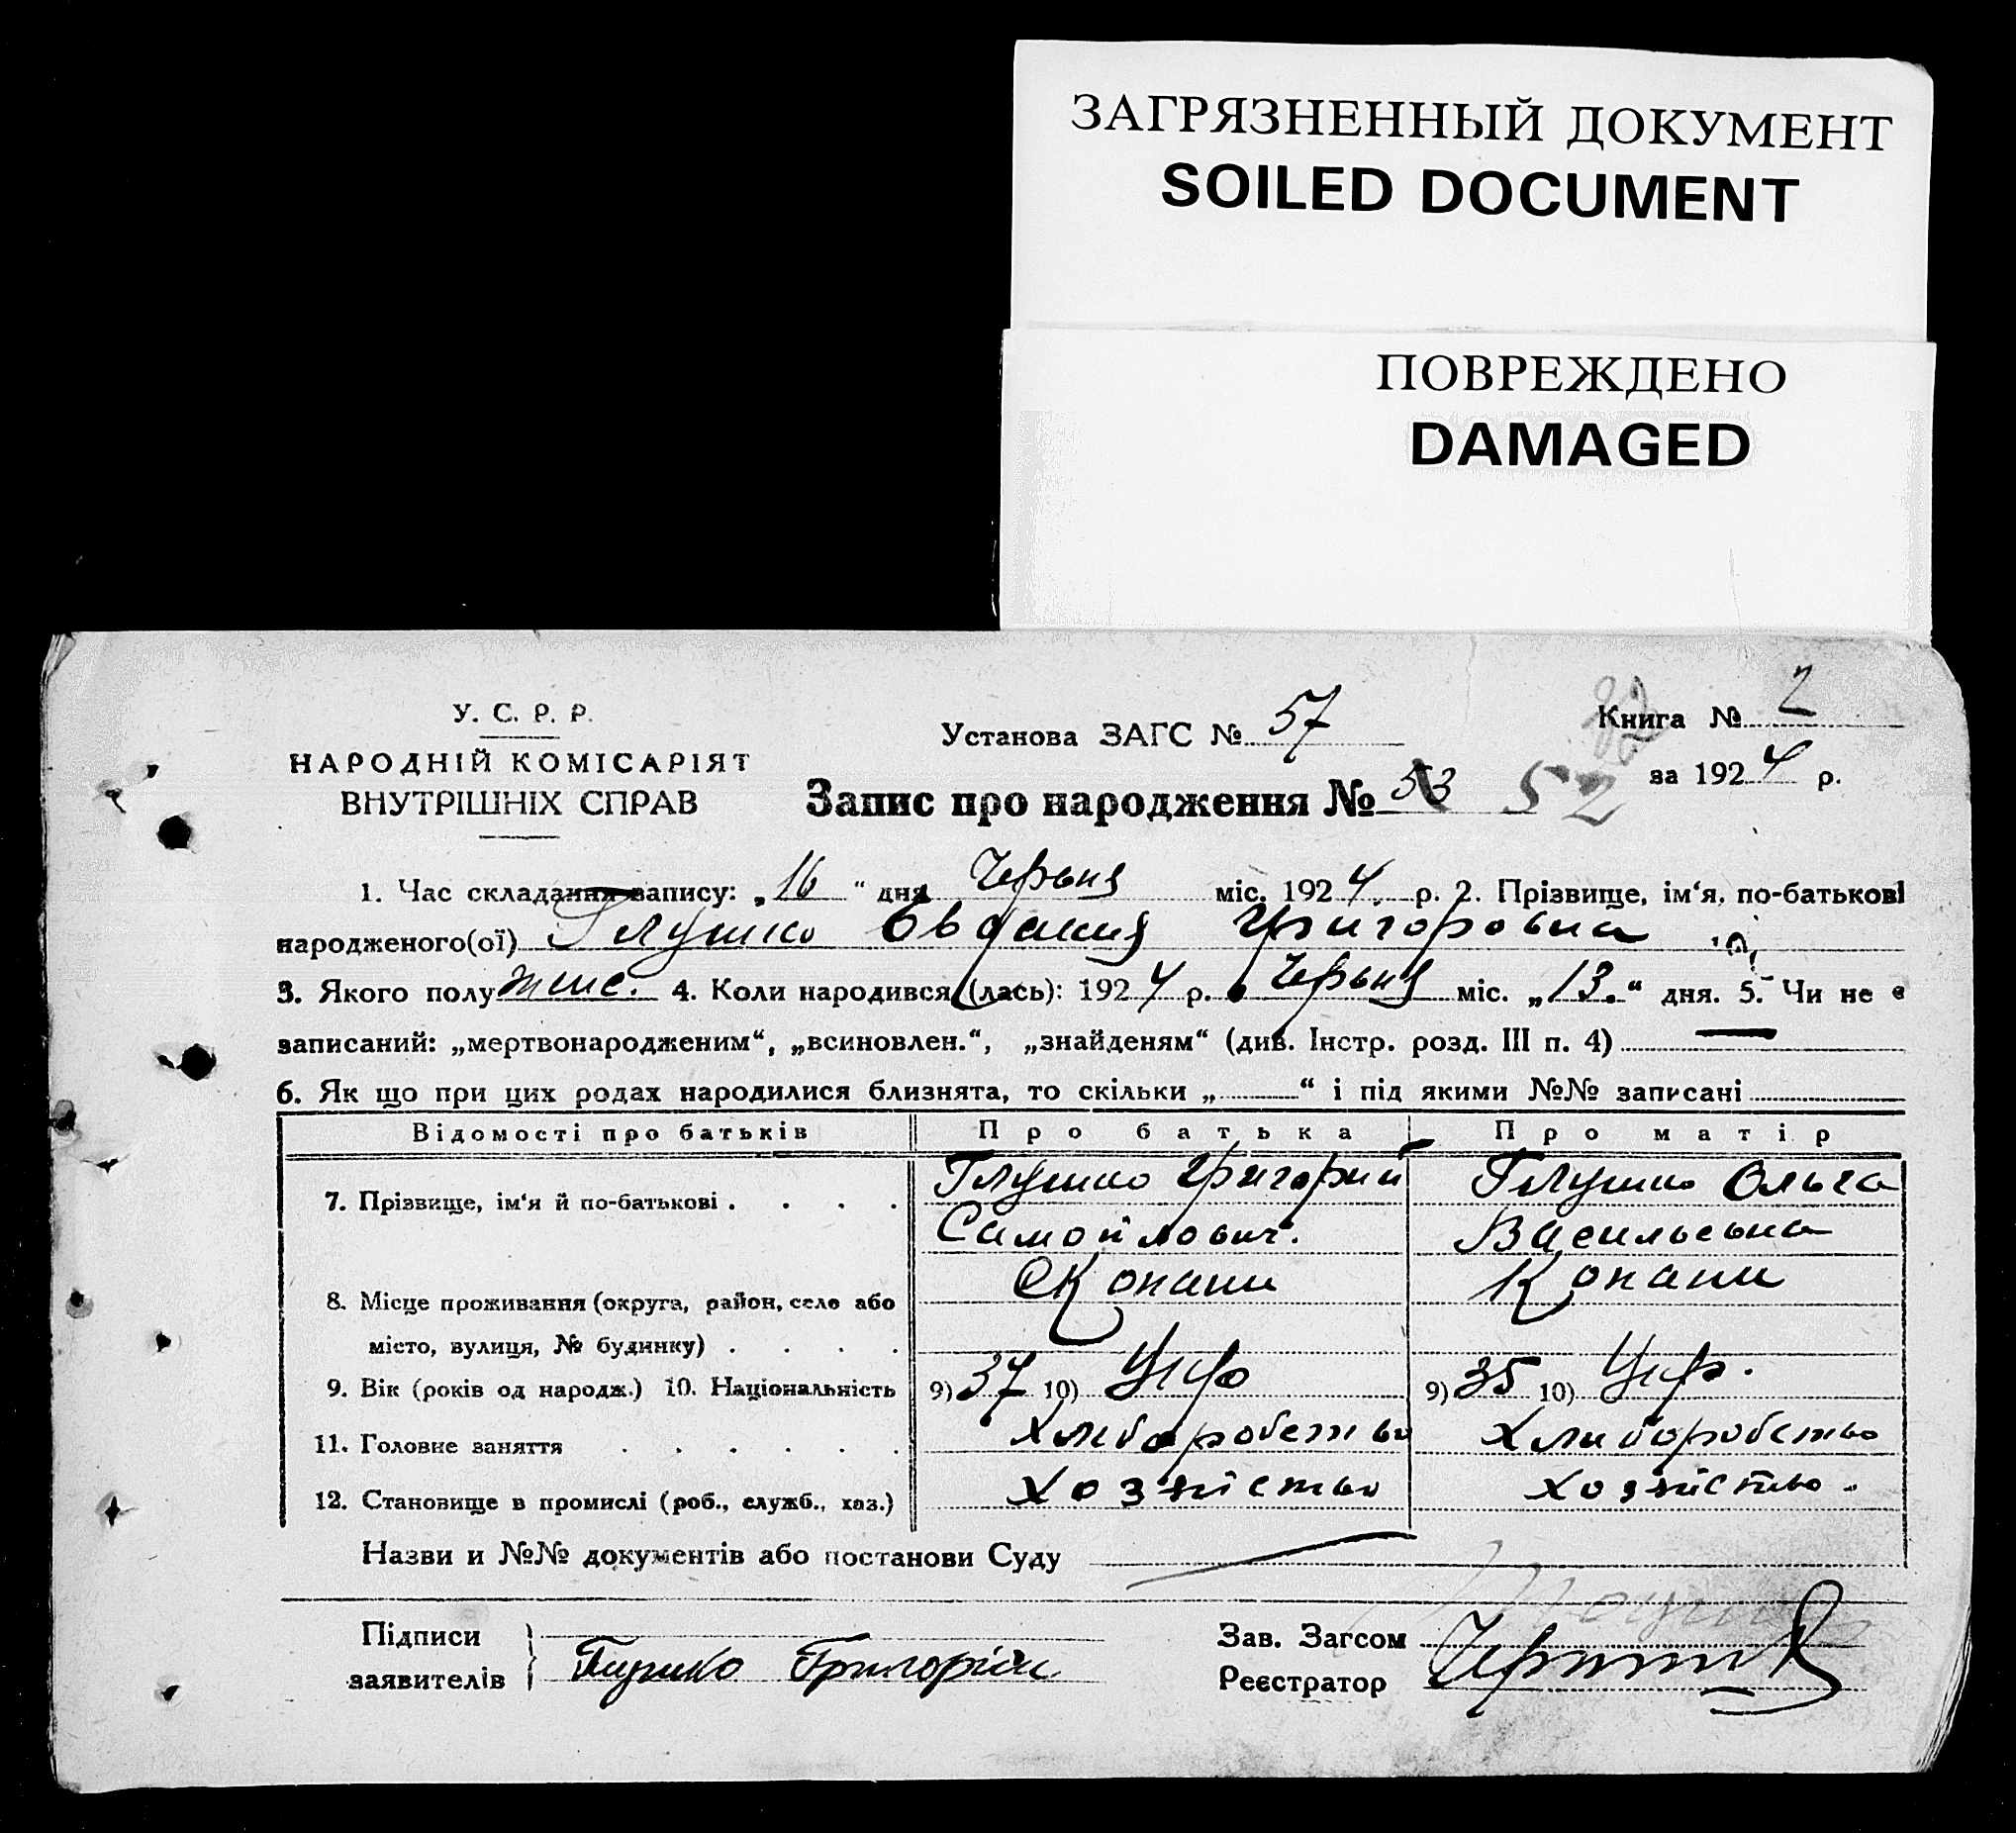 ЗАГРЯЗНЕННЫЙ ДОКУМЕНТ
SOILED DOCUMENT
ПОВРЕЖДЕНО
DAMAGED
У. С. Р. Р.
НАРОДНІЙ КОМІСАРІЯТ
ВНУТРІШНІХ СПРАВ
Установа ЗАГС № 57
Книга № 2
за 1924 р.
Запис про народження № 53 52
1. Час складання запису: „16“ дня Черьня міс. 1924 р. 2. Прізвище, ім‘я, по-батькові
народженого(ої) Глушко Евдакия Григоровна
3. Якого полу женс. 4. Коли народився (лась): 1924 р. Черьня міс. „13.“ дня. 5. Чи не є
записаний: „мертвонародженим“, „всиновлен.“, „знайденям“ (див. Інстр. розд. III п. 4) —
6. Як що при цих родах народилися близнята, то скільки „ “ і під якими №№ записані
Відомості про батьків Про батька Про матір
7. Прізвище, ім‘я й по-батькові . . . . Глушко Григорий Глушко Ольга
Самойлович. Васильевна
8. Місце проживання (округа, район, село або Копани Копани
місто, вулиця, № будинку) . . . .
9. Вік (років од народж.) 10. Національність 9) 37 10) Укр 9) 35 10) Укр.
11. Головне заняття . . . . . . Хлиборобство Хлиборобство
12. Становище в промислі (роб., служб., хаз.) Хозяйство Хозяйство.
Назви и №№ документів або постанови Суду
Підписи
заявителів Глушко Григорій
Зав. Загсом
Реєстратор